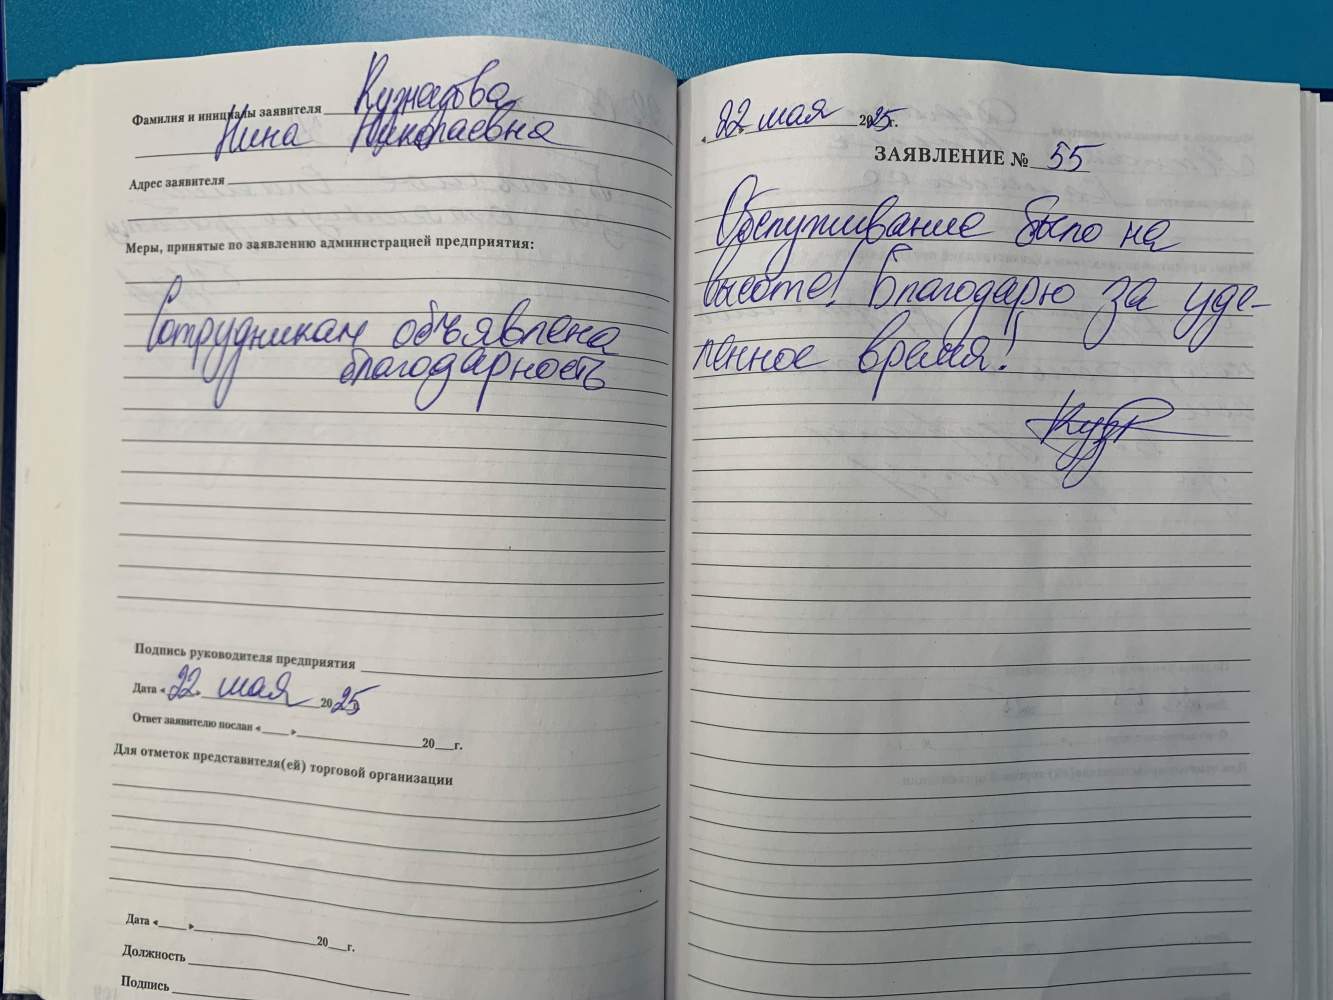 Фамилия и инициалы заявителя Кузнецова
Нина Николаевна
Адрес заявителя
Меры, принятые по заявлению администрацией предприятия:
Сотрудникам объявлена
благодарность
Подпись руководителя предприятия
Дата «22» мая 2025
Ответ заявителю послан «___» ___ 20___г.
Для отметок представителя(ей) торговой организации
Дата «___» ___ 20___г.
Должность
Подпись
«22» мая 2025г.
ЗАЯВЛЕНИЕ № 55
Обслуживание было на
высоте! Благодарю за уде-
ленное время!